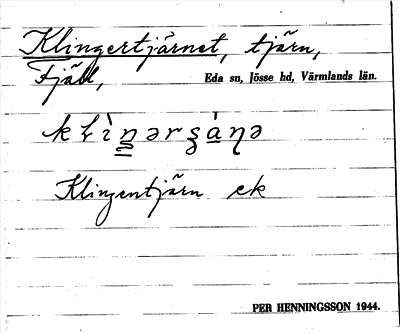 Klingertjärnet, tjärn,
Fjäll,
Eda sn, Jösse hd, Värmlands län.
Klingentjärn ek
PER HENNINGSSON 1944.